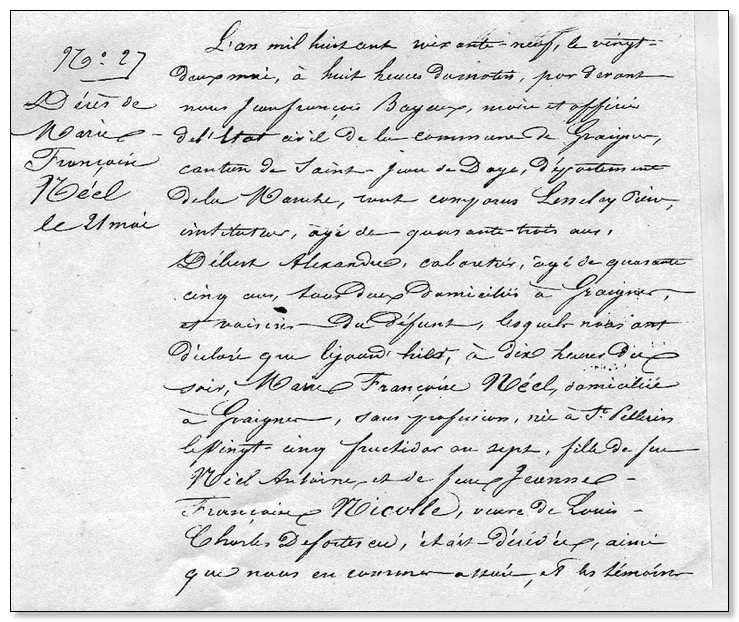 No. 27
Décès de
Marie
Françoise
Néel
le 21 mai
L'an mil huit cent soixante-neuf, le vingt-
deux mai, à huit heures du matin, par devant
nous Jean françois Bayeux, maire et officier
de l'Etat civil de la commune de Graignes,
canton de Saint-Jean de Daye, département
de la Manche, sont comparus
instituteur, âgé de quarante-trois ans,
Débert Alexandre, cabaretier, âgé de quarante
cinq ans, tous deux domiciliés à Graignes,
et voisins du défunt, lesquels nous ont
déclaré que le jour d'hier, à dix heures du
soir, Marie Françoise Néel, domiciliée
à Graignes, sans profession, née à St. Pellerin
le vingt-cinq fructidor an sept, fille de feu
Néel Antoine et de feue Jeanne-
Françoise Nicolle, veuve de Louis-
Charles Defortescu, était décédée, ainsi
que nous en sommes assuré, et les témoins